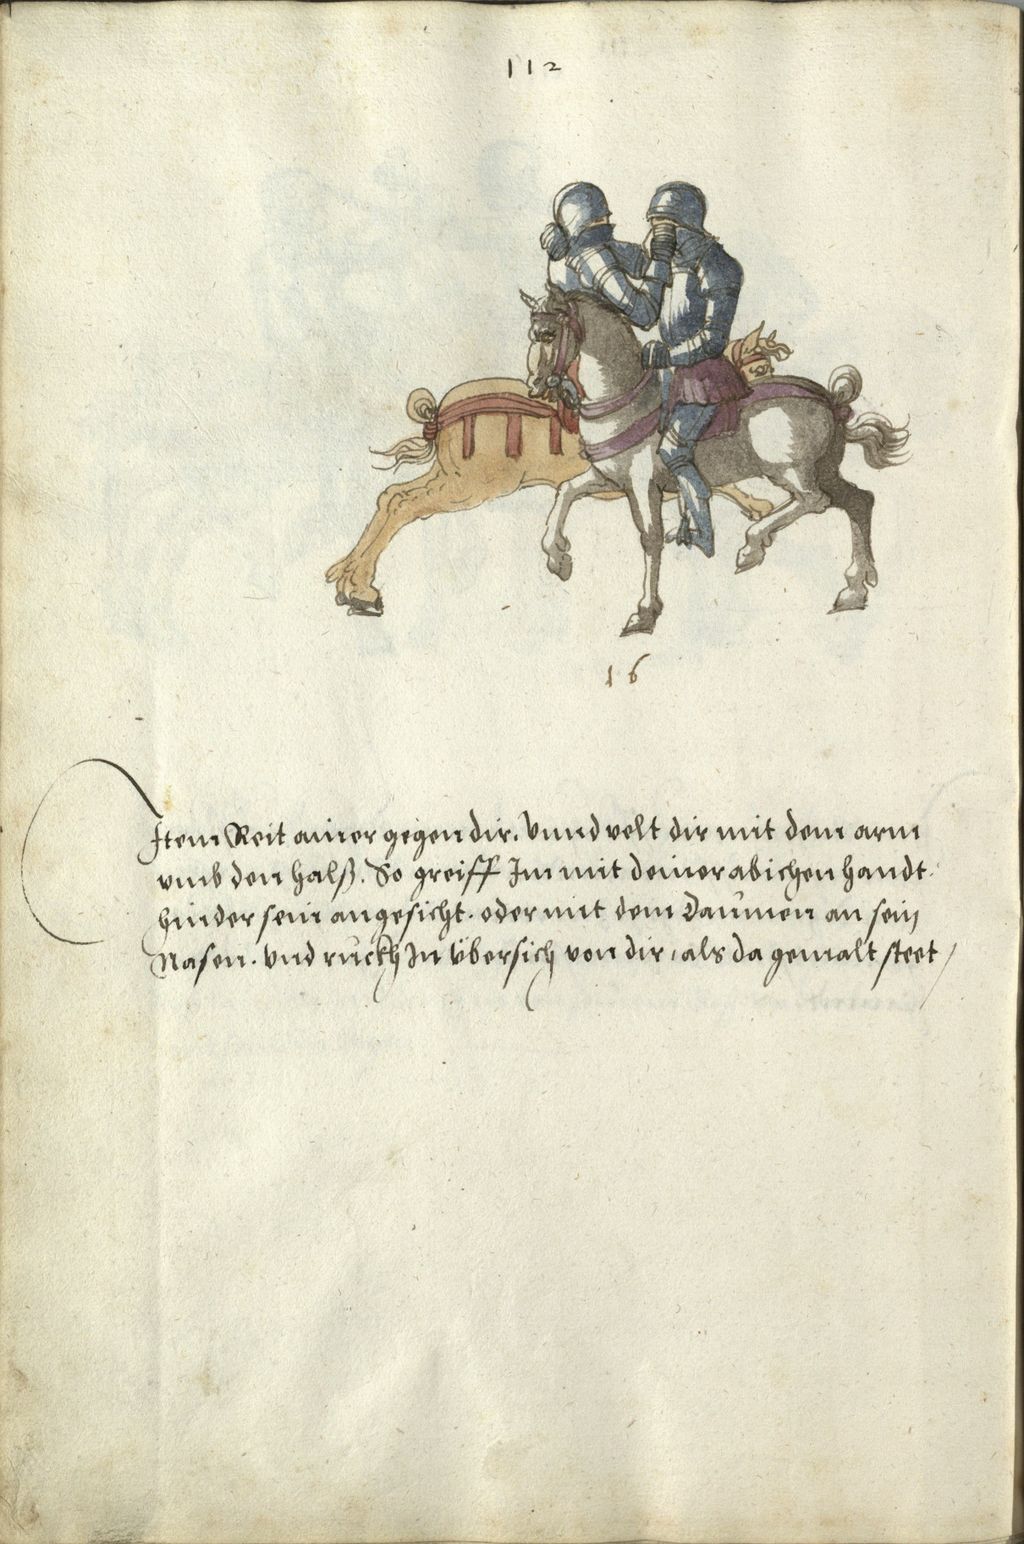 112
16
Item Reit ainer gegen dir. Vnnd velt dir mit dem arm
vmb den halß. So greiff Im mit deiner abichen handt.
hinder sein angesicht. oder mit dem Daumen an sein
Nasen. vnd ruckh In Vbersich von dir, als da gemalt steet